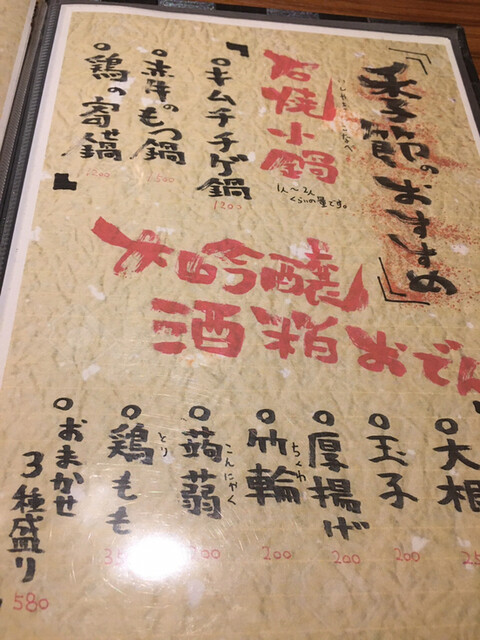 『季節のおすすめ』
石焼小鍋
いしやきこなべ
1人〜2人
くらいの量です。
○キムチチゲ鍋
1200
○赤牛のもつ鍋
1500
○鶏の寄せ鍋
1200
大吟醸
酒粕おでん
○大根
○玉子
200
○厚揚げ
200
○竹輪
ちくわ
200
○蒟蒻
こんにゃく
200
○鶏もも
とり
○おまかせ
3種盛り
580